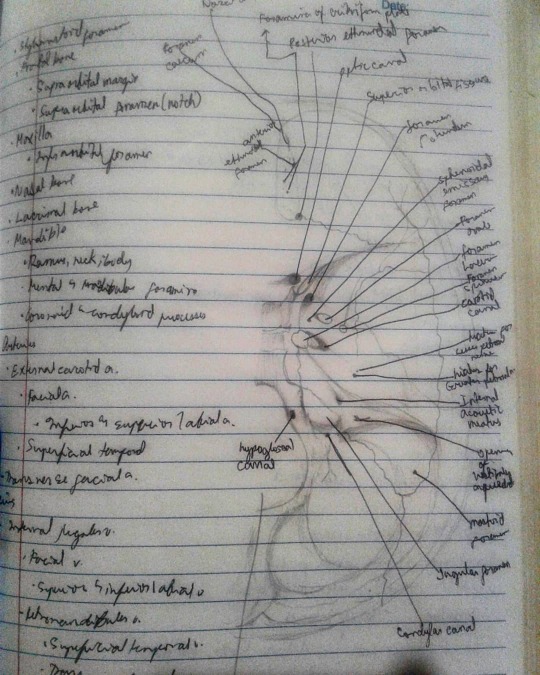 Date:
Foramina of cribriform plate
Posterior ethmoidal foramen
foramen
caecum
optic canal
Superior orbital fissure
anterior
ethmoidal
foramen
foramen
rotundum
sphenoidal
emissary
foramen
foramen
ovale
foramen
foramen
spinosum
carotid
canal
hiatus for
hiatus for
Internal
acoustic
meatus
opening
of
mastoid
foramen
Jugular foramen
Condylar canal
hypoglossal
canal
• Stylomastoid foramen
• Supraorbital margin
• Supraorbital foramen (notch)
• Maxilla
• Infraorbital foramen
• Nasal bone
• Lacrimal bone
• Mandible
• Ramus, neck, body
• Mental &
• Coronoid & condyloid processes
Arteries
• External carotid a.
• Facial a.
• Inferior & superior labial a.
• Superficial temporal
• Transverse facial a.
• Internal jugular v.
• Facial v.
• Superior & inferior labial v.
• Retromandibular v.
• Superficial temporal v.